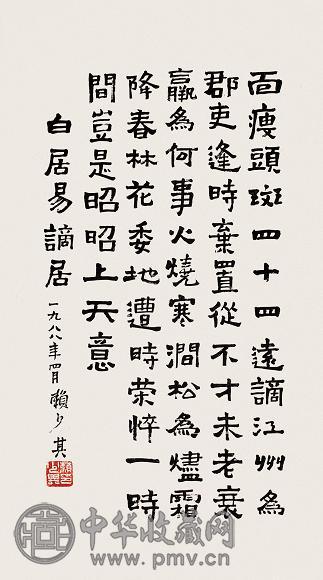 面瘦頭斑四十四遠謫江州為
郡吏逢時棄置從不才未老衰
羸為何事火燒寒澗松為燼霜
降春林花委地遭時荣悴一時
間豈是昭昭上天意
白居易謫居
一九八八年四月賴少其
中华收藏网
www.pmv.cn